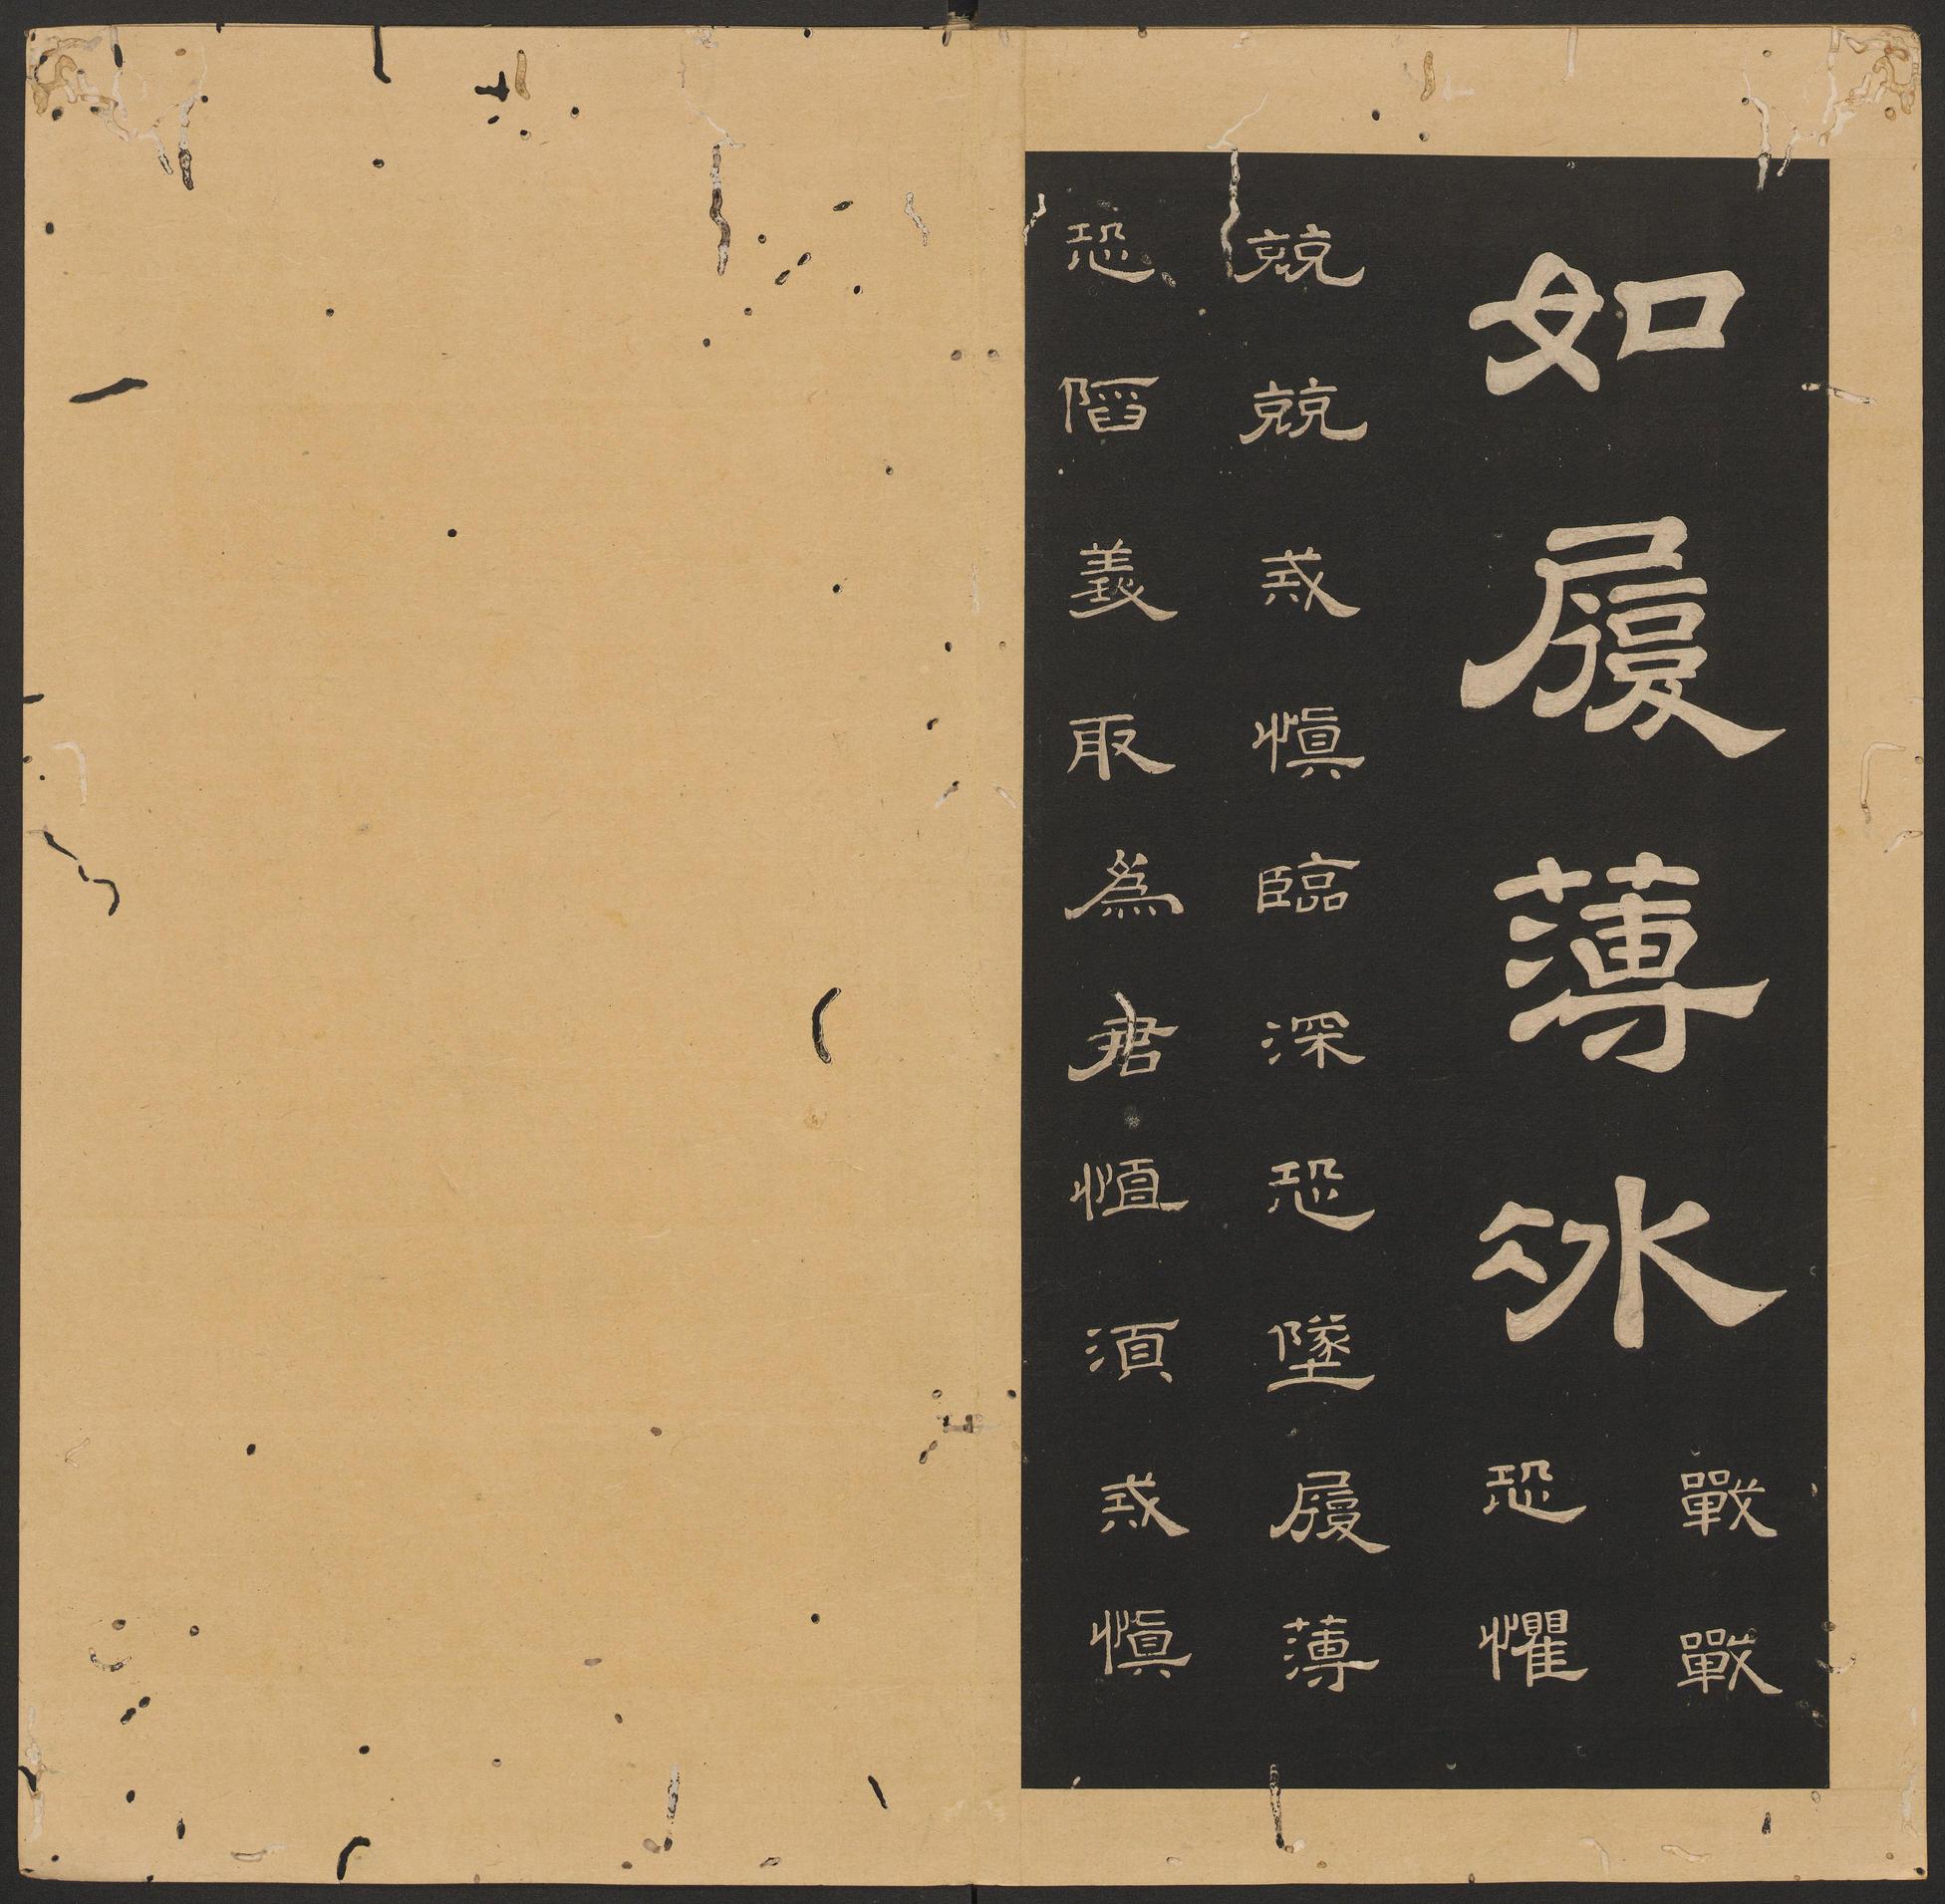 如履薄冰
戰戰
恐懼
兢兢戒慎臨深恐墜履薄
恐陷義取為君恒須戒慎